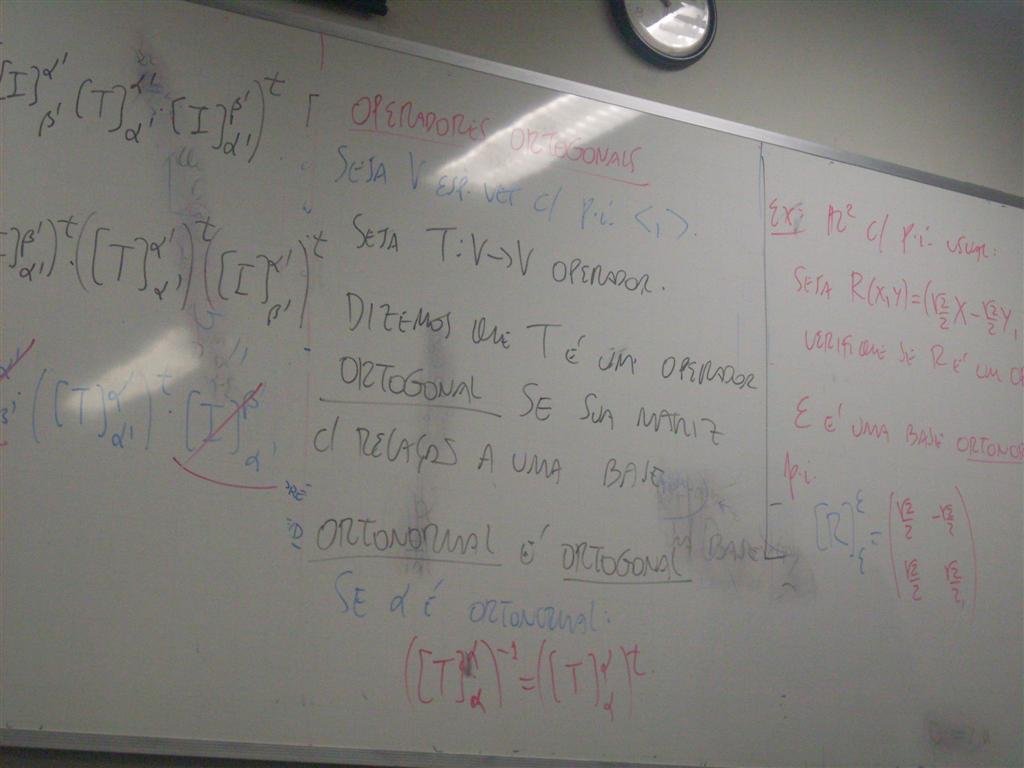 [I]^α'_β' [T]^α'_α' · [I]^β'_α')^t
I]^β'_α')^t · ([T]^α'_α')^t ([I]^α'_β')^t
([T]^α'_α')^t · [I]^β'_α'
OPERADORES ORTOGONAIS
SEJA V ESP. VET C/ P.I. <,>.
SEJA T:V→V OPERADOR.
DIZEMOS QUE T É UM OPERADOR
ORTOGONAL SE SUA MATRIZ
C/ RELAÇÃO A UMA BASE
ORTONORMAL É ORTOGONAL
SE α É ORTONORMAL:
([T]^α_α)^-1 = ([T]^α_α)^t.
EX: R² C/ P.I. USUAL:
SEJA R(X,Y)=(√2/2 X - √2/2 Y,
VERIFIQUE SE R É UM
ε É UMA BASE ORTONOR
P.I.
[R]^ε_ε = (√2/2 -√2/2
√2/2 √2/2)